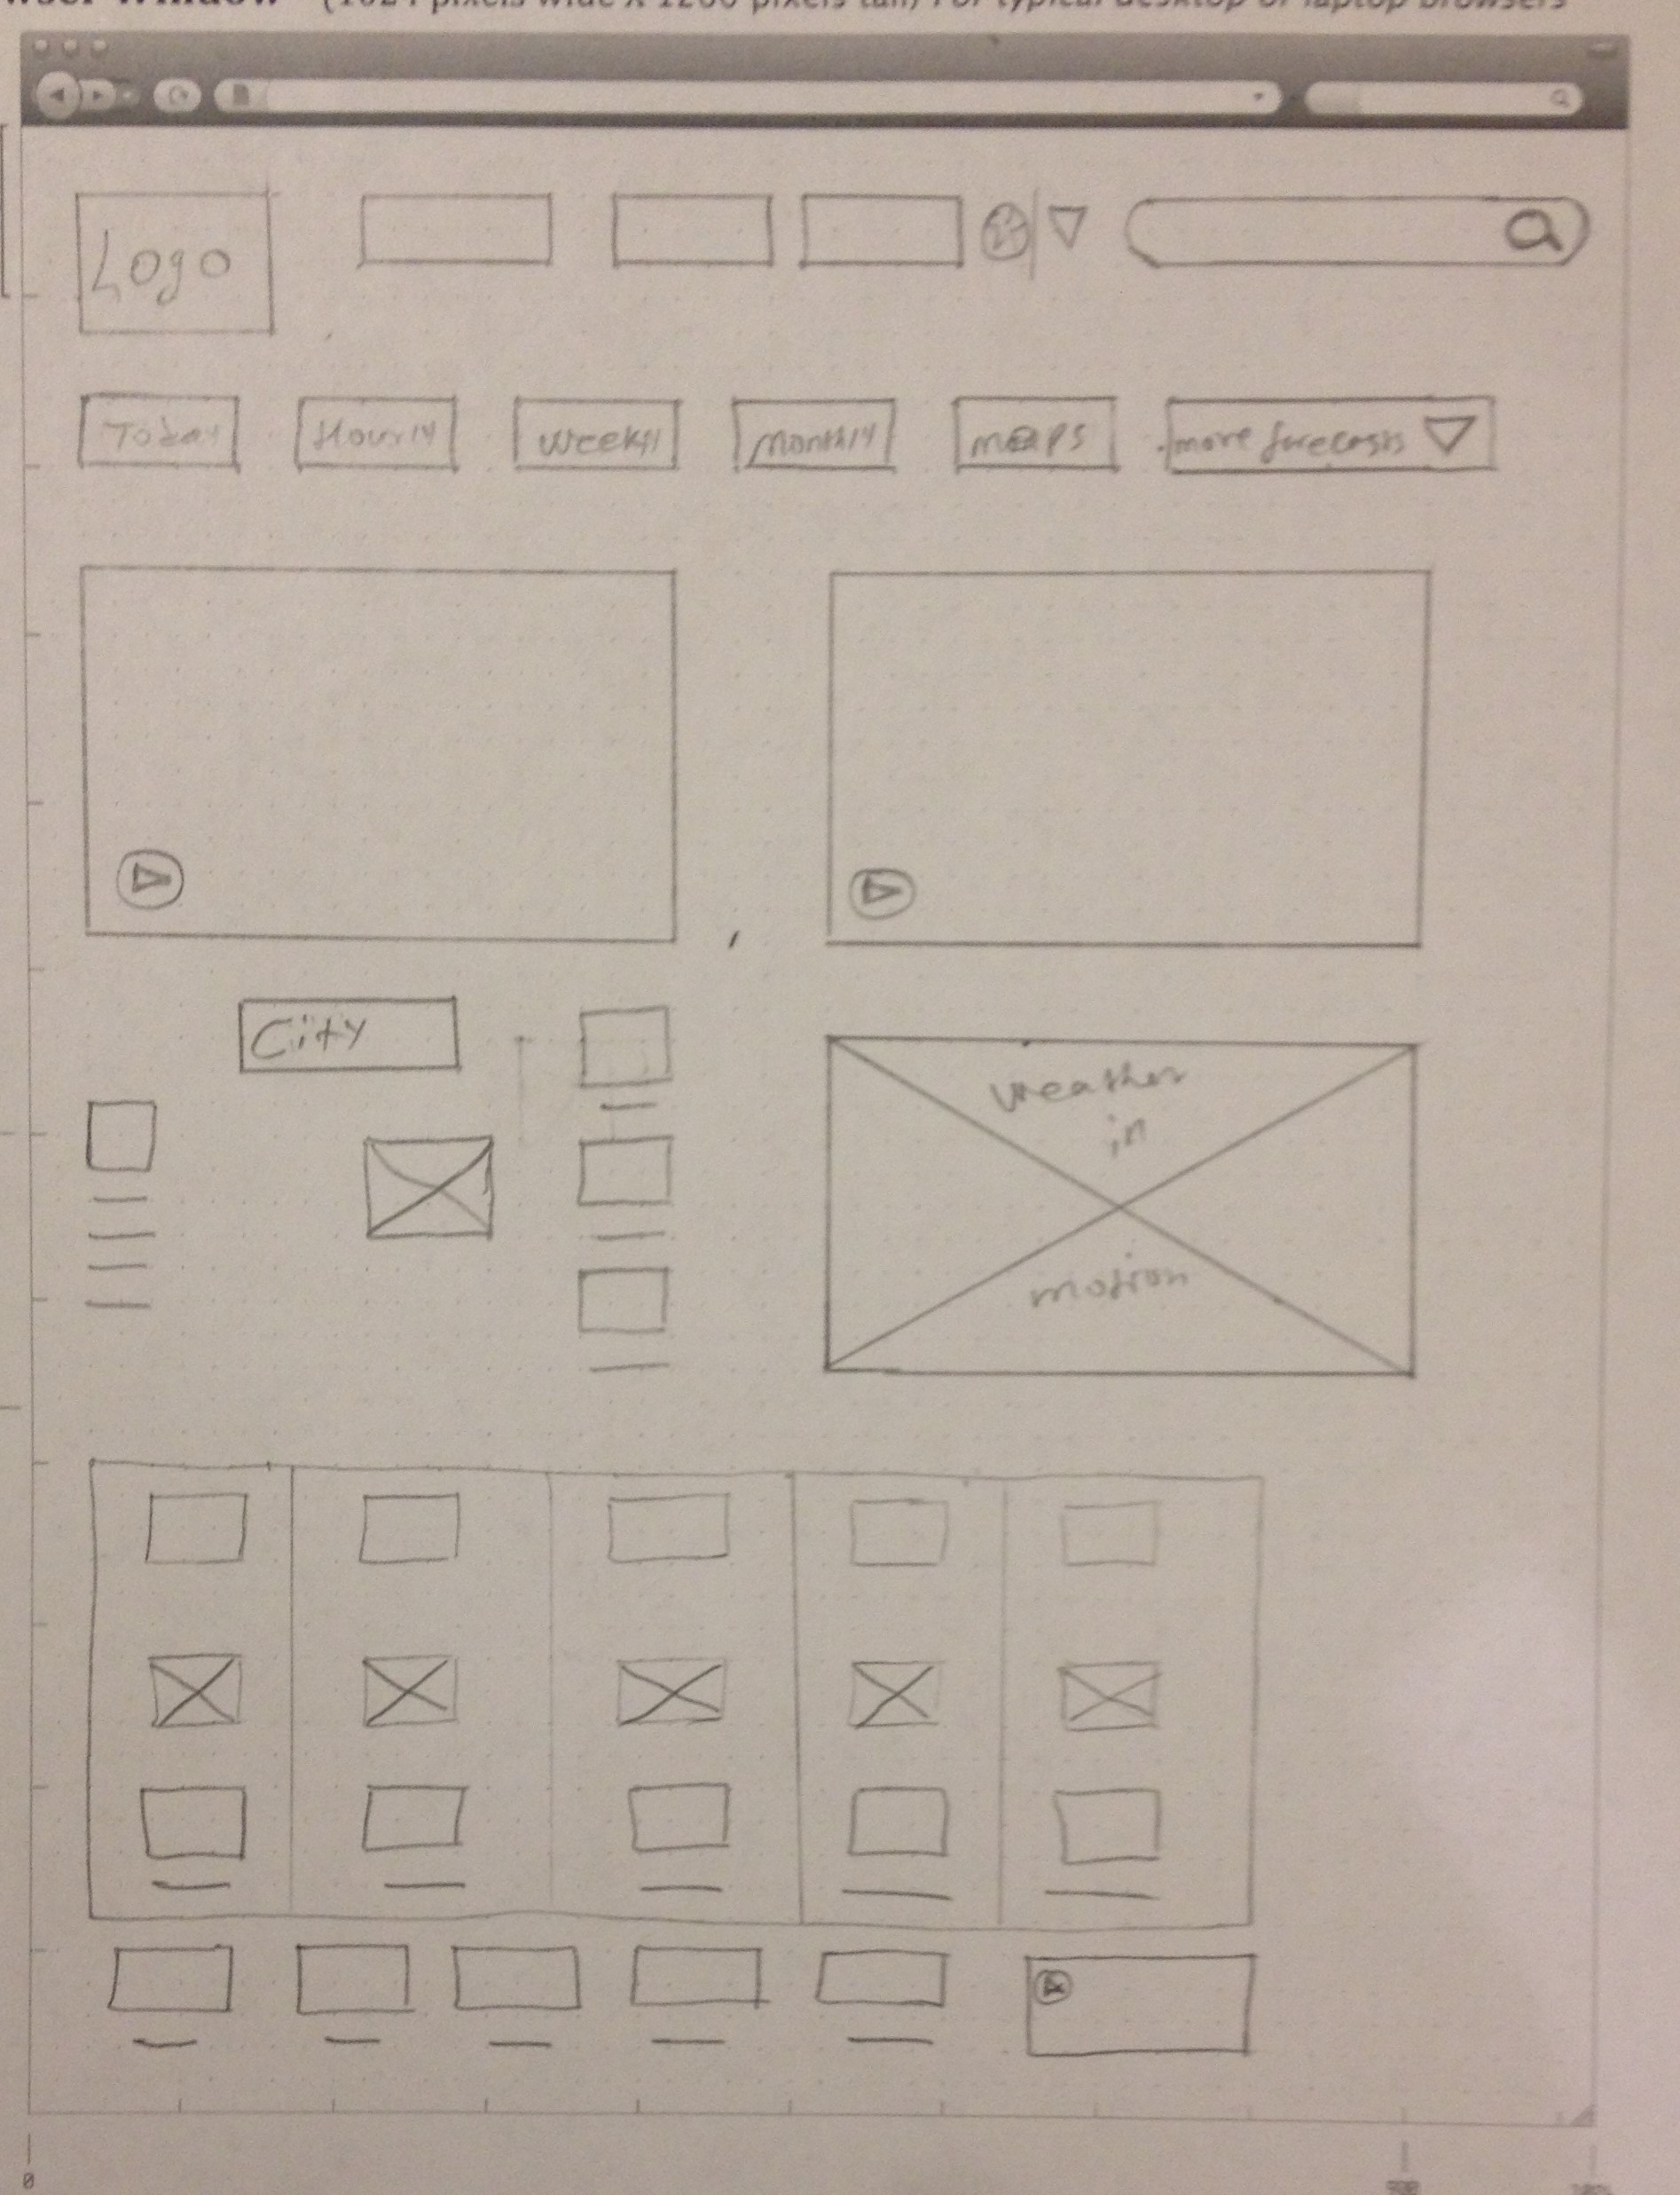 wser Window (1024 pixels wide x 1200 pixels tall) For typical desktop or laptop browsers
Logo
Today Hourly Weekly Monthly maps more forecasts
City
weather
in
motion
0